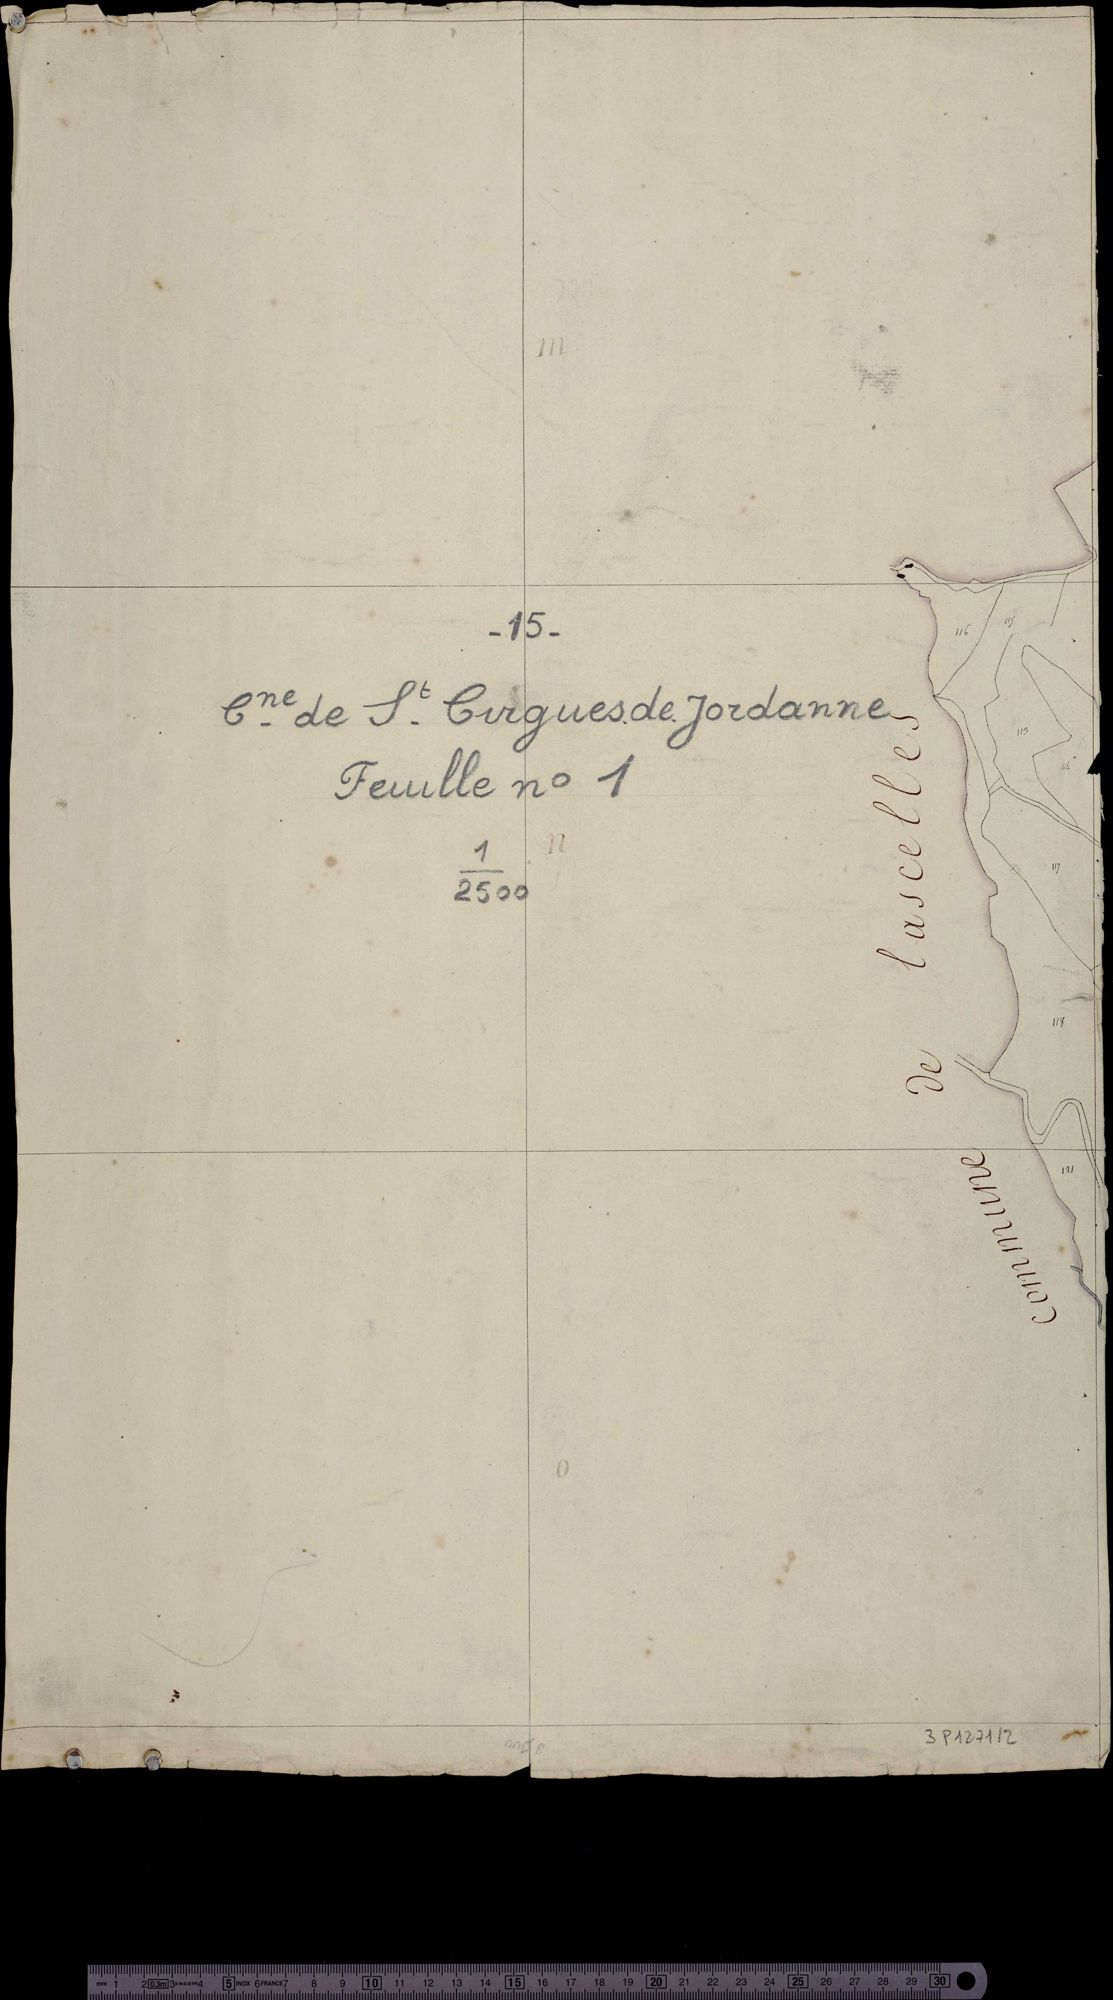 m
-15-
Cne de St Cirgues.de.Jordanne
Feuille no 1
1
2500
n
commune de lascelles
116
115
113
117
118
121
o
3 P 1271/2
mm 1 2 0.3m 3 4 5 INOX 6 FRANCE 7 8 9 10 11 12 13 14 15 16 17 18 19 20 21 22 23 24 25 26 27 28 29 30